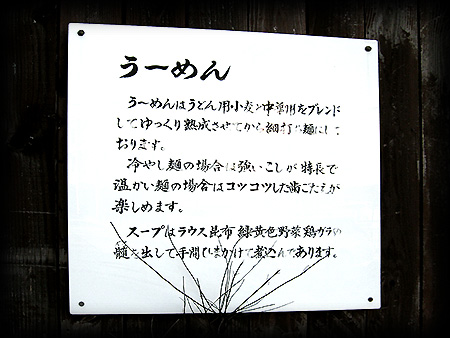 うーめん
うーめんはうどん用小麦と中華用をブレンド
してゆっくり熟成させてから細打ち麺にして
おります。
冷やし麺の場合は強いこしが特長で
温かい麺の場合はコツコツした歯ごたえが
楽しめます。
スープはラウス昆布 緑黄色野菜 鶏ガラの
髄を出して手間ひまかけて煮込んであります。